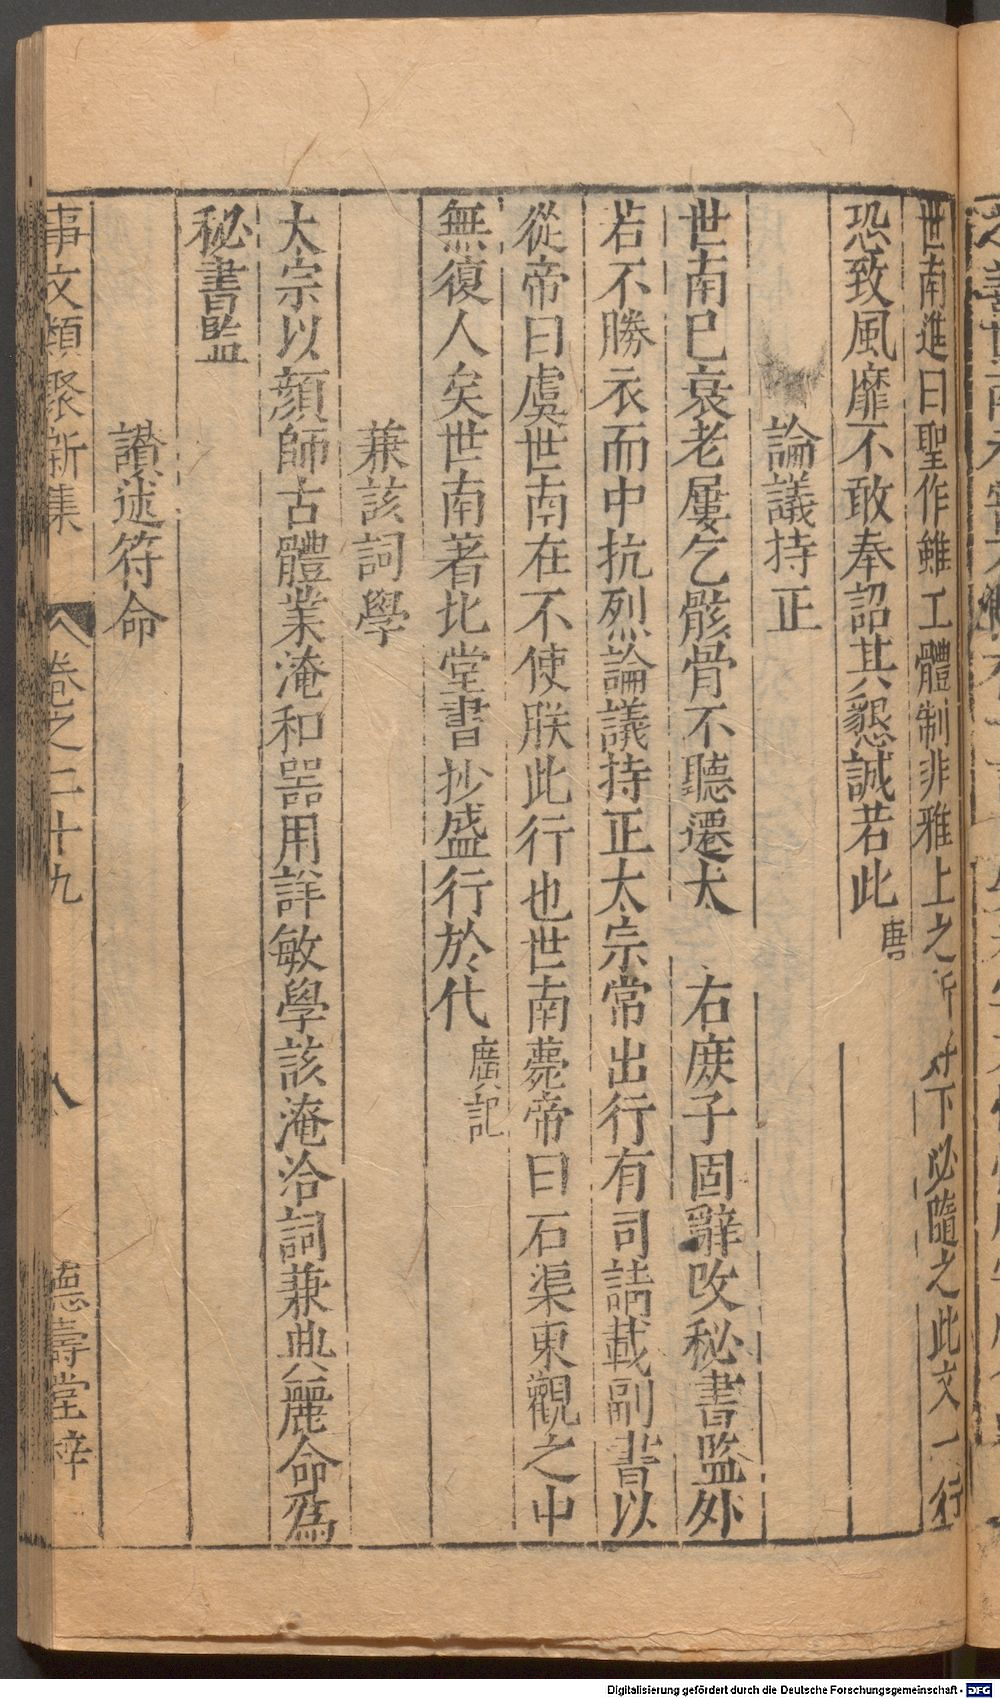 世南進曰聖作雖工體制非雅上之所好下必隨之此文一行
恐致風靡不敢奉詔其懇誠若此唐
論議持正
世南已衰老屢乞骸骨不聽遷太 右庶子固辭改秘書監外
若不勝衣而中抗烈論議持正太宗常出行有司請載副書以
從帝曰虞世南在不使朕此行也世南薨帝曰石渠東觀之中
無復人矣世南著北堂書抄盛行於代廣記
兼該詞學
太宗以顏師古體業淹和器用詳敏學該淹洽詞兼典麗命為
秘書監
讚述符命
事文類聚新集 卷之二十九 八 德壽堂梓
Digitalisierung gefördert durch die Deutsche Forschungsgemeinschaft - DFG